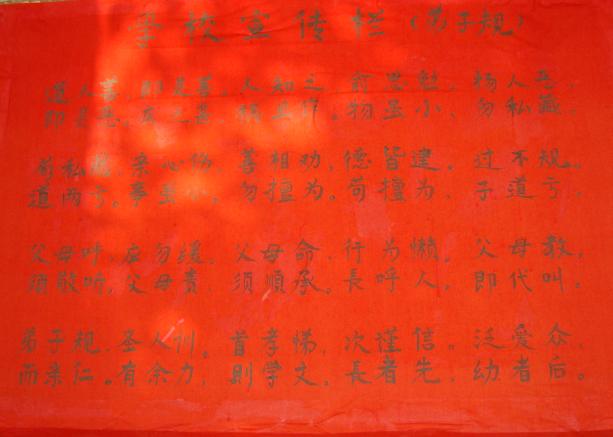 学校宣传栏（弟子规）
道人善，即是善，人知之，俞思勉，扬人恶，
即是恶，疾之甚，祸且作。物虽小，勿私藏，
苟私藏，亲心伤，善相劝，德皆建。过不规。
道两亏。事虽小。勿擅为。苟擅为，子道亏，
父母呼，应勿缓。父母命，行勿懒。父母教，
须敬听，父母责 须顺承。長呼人，即代叫。
弟子规，圣人训。首孝悌，次谨信。泛爱众，
而亲仁。有余力，则学文。長者先，幼者后。